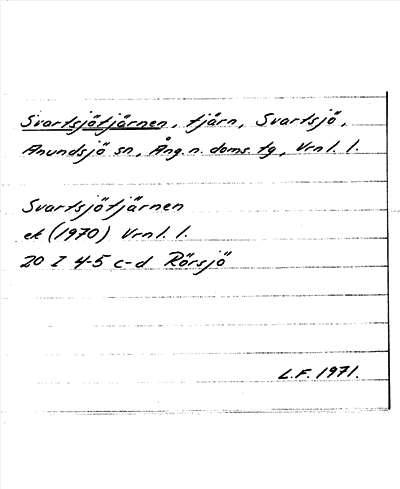 Svartsjötjärnen, tjärn, Svartsjö,
Anundsjö sn, Ång. n. doms. tg, Vrnl. l.
Svartsjötjärnen
ek (1970) Vrnl. l.
20 I 4-5 c-d Rörsjö
L.F. 1971.